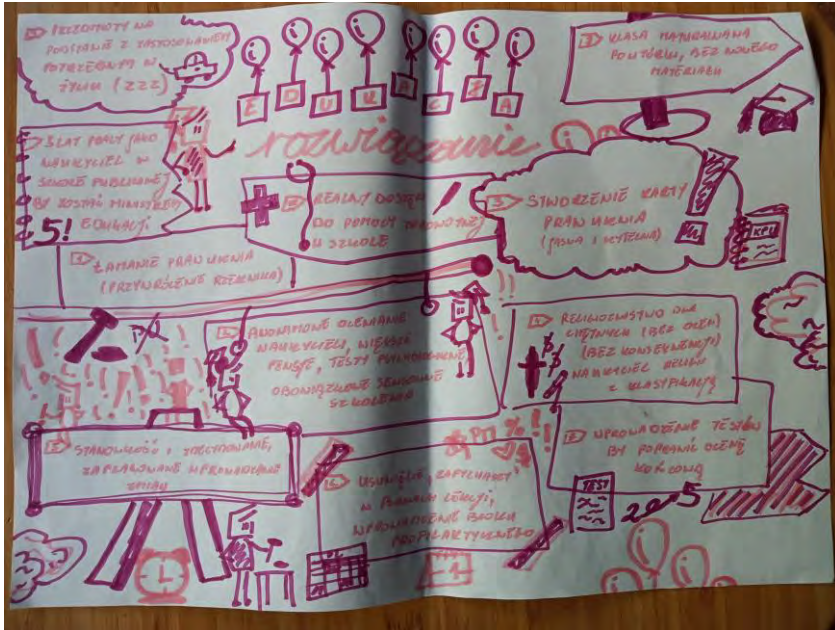 PRZEDMIOTY NA
PODSTAWIE Z ZASTOSOWANIEM
POTRZEBNYM W
ŻYCIU (ZZZ)
EDUKACJA
rozwiązanie
KLASA MATURALNA
POWTÓRKI, BEZ NOWEGO
MATERIAŁU
5 LAT PRACY JAKO
NAUCZYCIEL W
SZKOLE PUBLICZNEJ
BY ZOSTAĆ MINISTREM
5! EDUKACJI
REALNY DOSTĘP
DO POMOCY
W SZKOLE
3 STWORZENIE KARTY
PRAW UCZNIA
(JASNA I CZYTELNA)
KPU
ŁAMANIE PRAW UCZNIA
(PRZYWRÓCENIE RZECZNIKA)
ANONIMOWE OCENIANIE
NAUCZYCIELI, WIĘKSZE
PENSJE, TESTY PSYCHOLOGICZNE
OBOWIĄZKOWE SENSOWNE
SZKOLENIA
RELIGIOZNAWSTWO DLA
CHĘTNYCH (BEZ OCEN)
(BEZ KONSEKWENCJI)
NAUCZYCIEL RELIGII
Z KLASYFIKACJĄ
STANOWCZOŚĆ I ZDECYDOWANIE,
ZAPLANOWANE WPROWADZANIE
ZMIAN
USUNIĘCIE „ZAPYCHACZY”
W PLANACH LEKCJI,
WPROWADZENIE BLOKU
PROFILAKTYCZNEGO
WPROWADZENIE TESTÓW
BY POPRAWIĆ OCENĘ
KOŃCOWĄ
TEST
2 5
-1